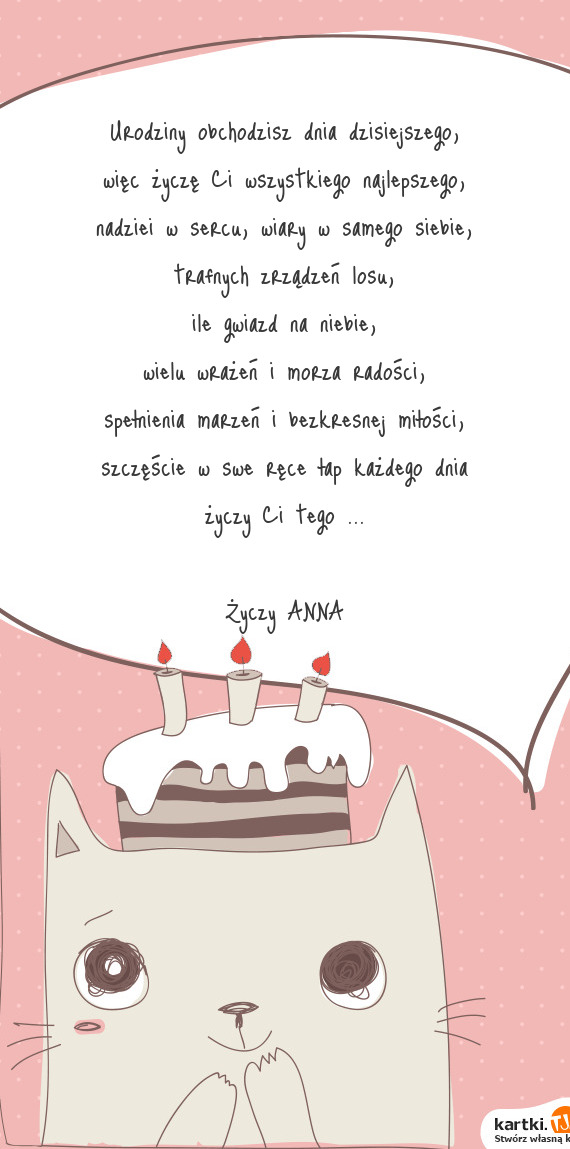 Urodziny obchodzisz dnia dzisiejszego,
więc życzę Ci wszystkiego najlepszego,
nadziei w sercu, wiary w samego siebie,
trafnych zrządzeń losu,
ile gwiazd na niebie,
wielu wrażeń i morza radości,
spełnienia marzeń i bezkresnej miłości,
szczęście w swe ręce łap każdego dnia
życzy Ci tego ...
Życzy ANNA
kartki.TJ
Stwórz własną k